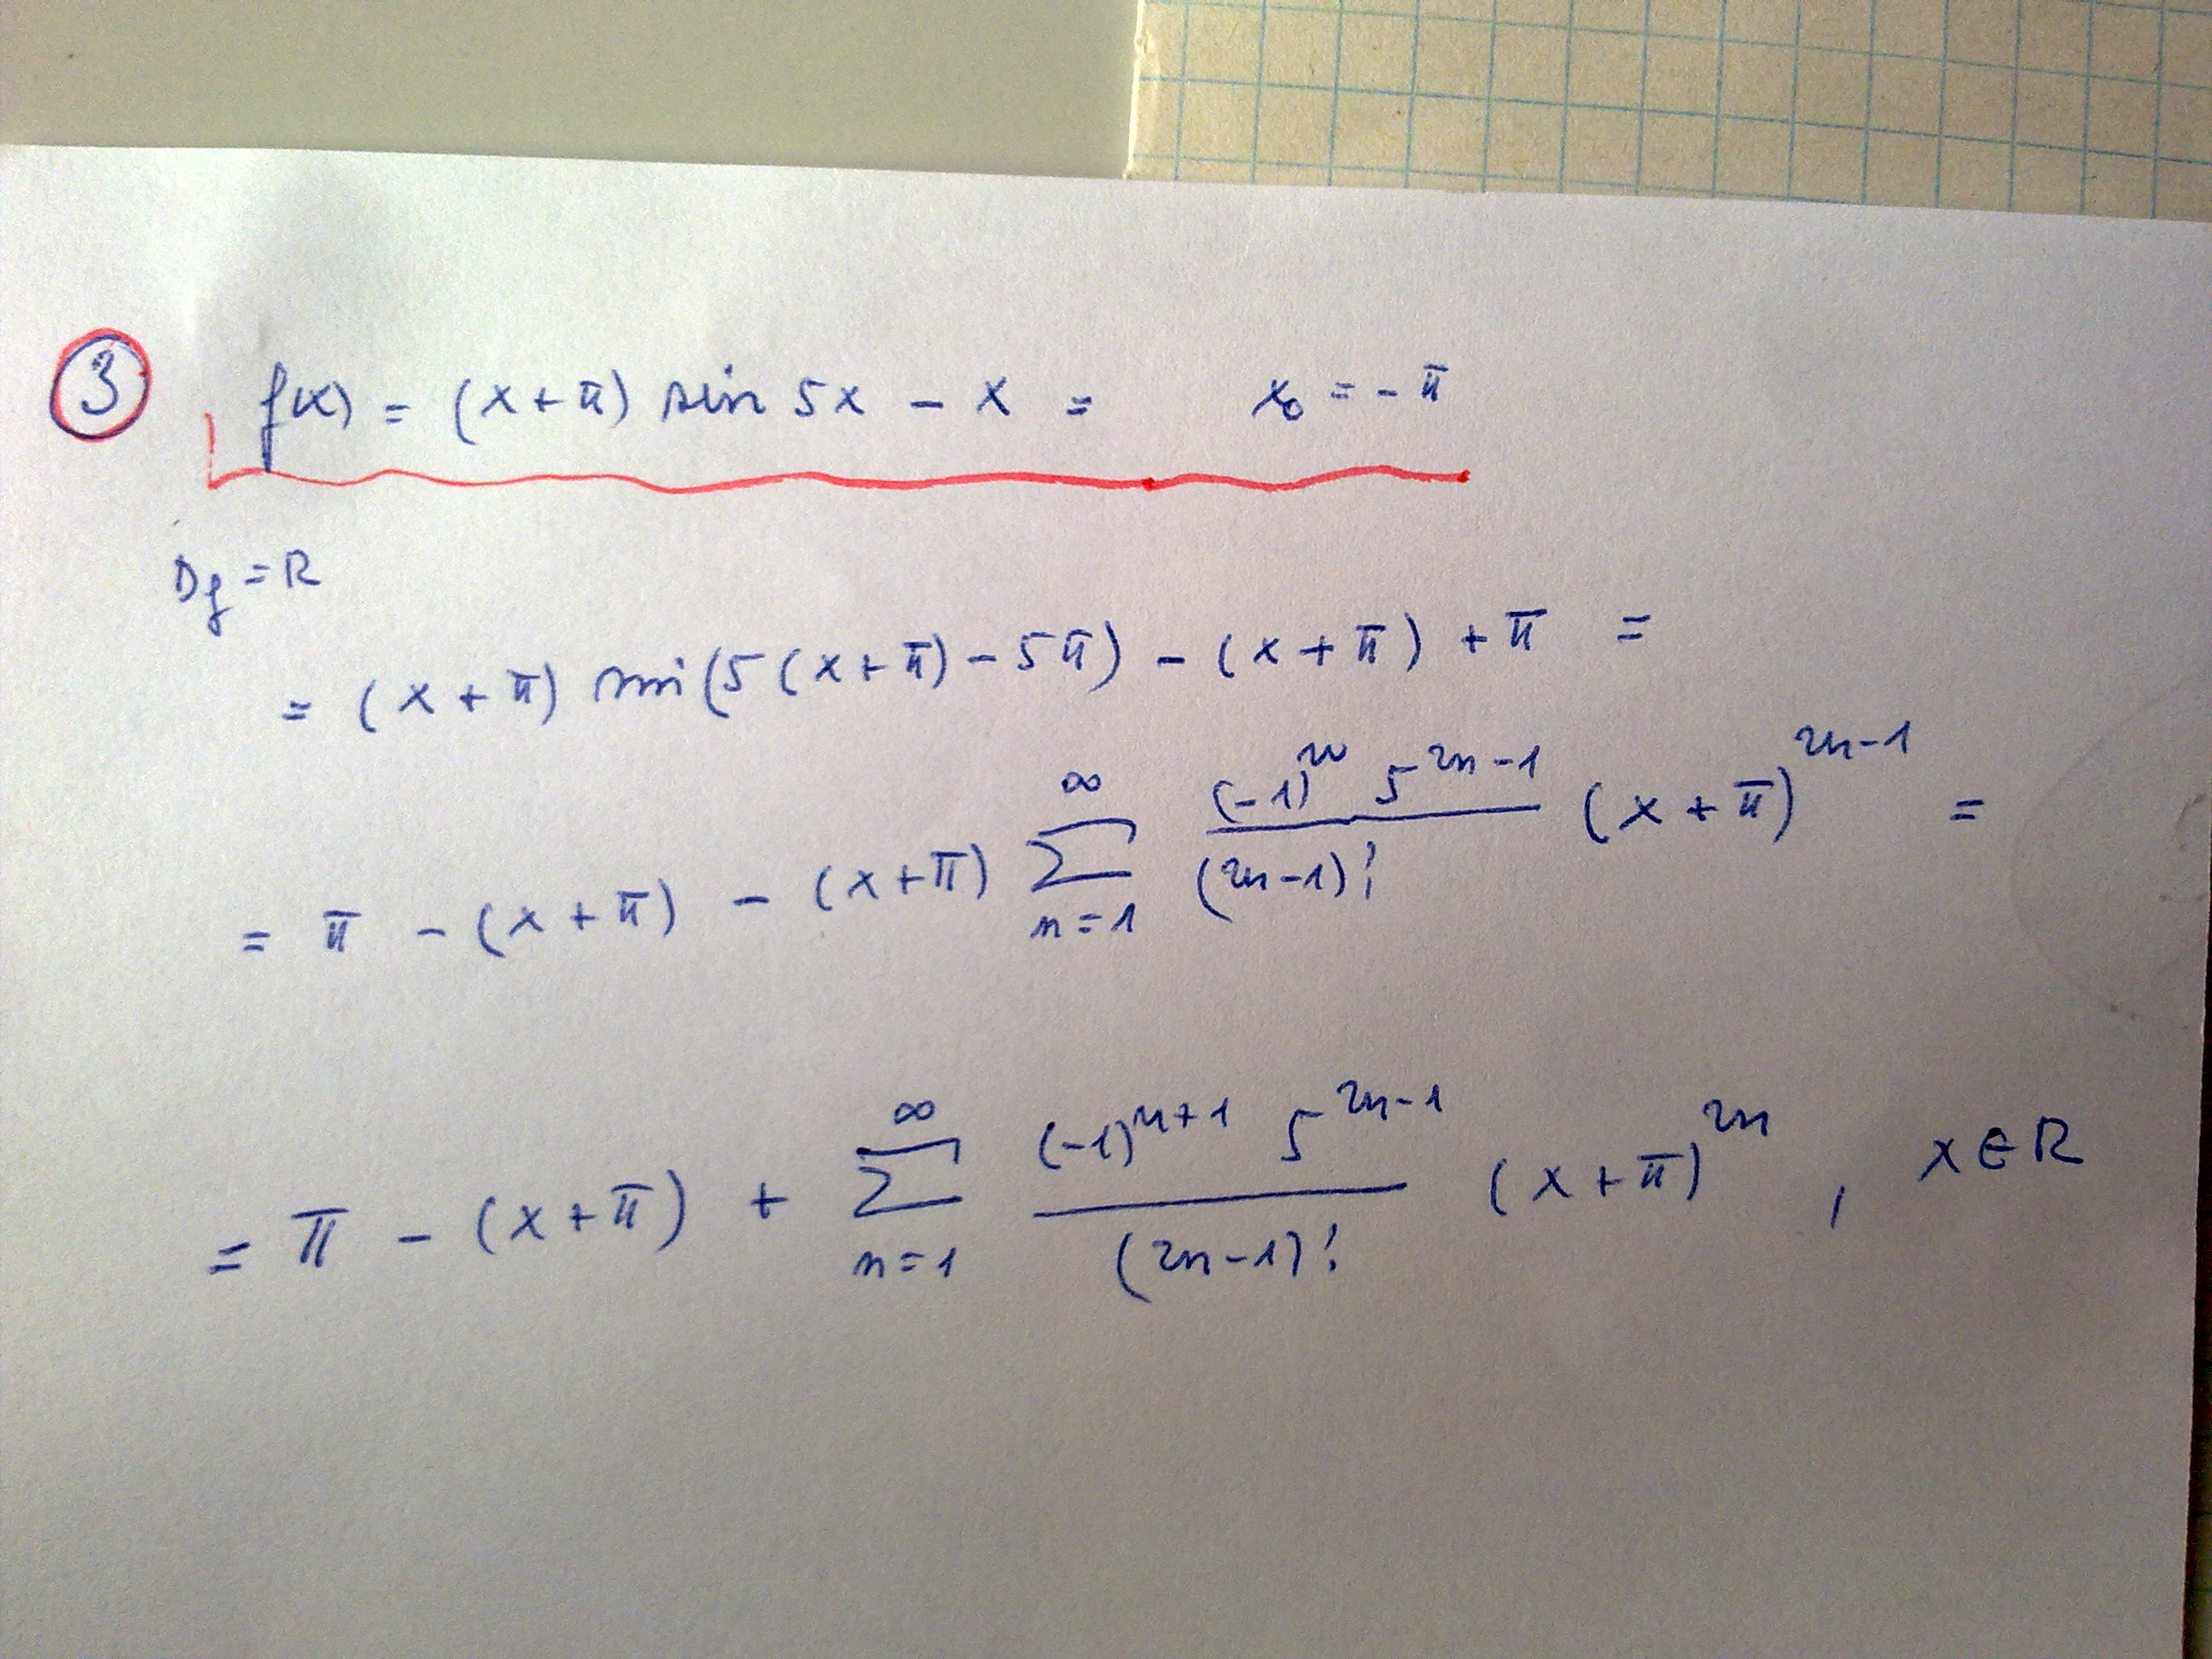 ③ f(x) = (x+π) sin 5x - x = x₀ = -π
D_f = R
= (x+π) sin(5(x+π)-5π) - (x+π) + π =
= π - (x+π) - (x+π) ∑_{n=1}^{∞} \frac{(-1)^n 5^{2n-1}}{(2n-1)!} (x+π)^{2n-1} =
= π - (x+π) + ∑_{n=1}^{∞} \frac{(-1)^{n+1} 5^{2n-1}}{(2n-1)!} (x+π)^{2n} , x∈R